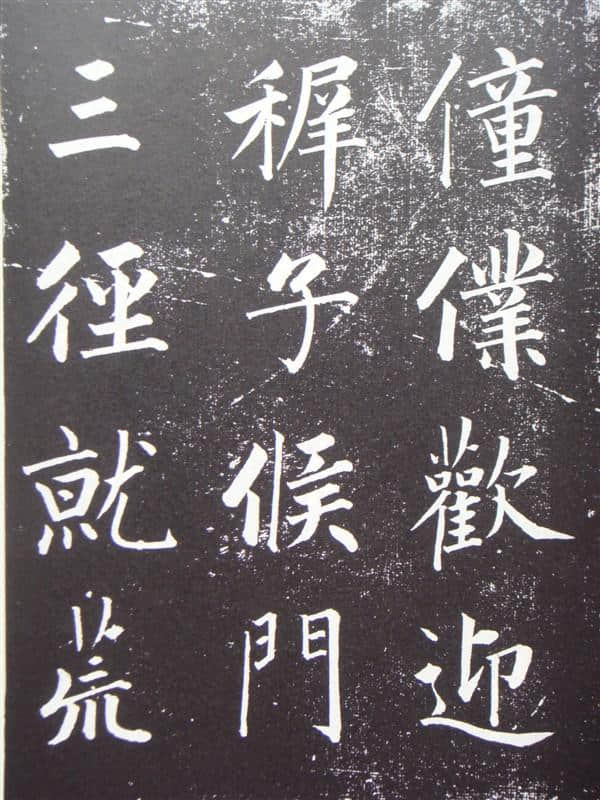 僮僕歡迎
稺子候門
三徑就荒